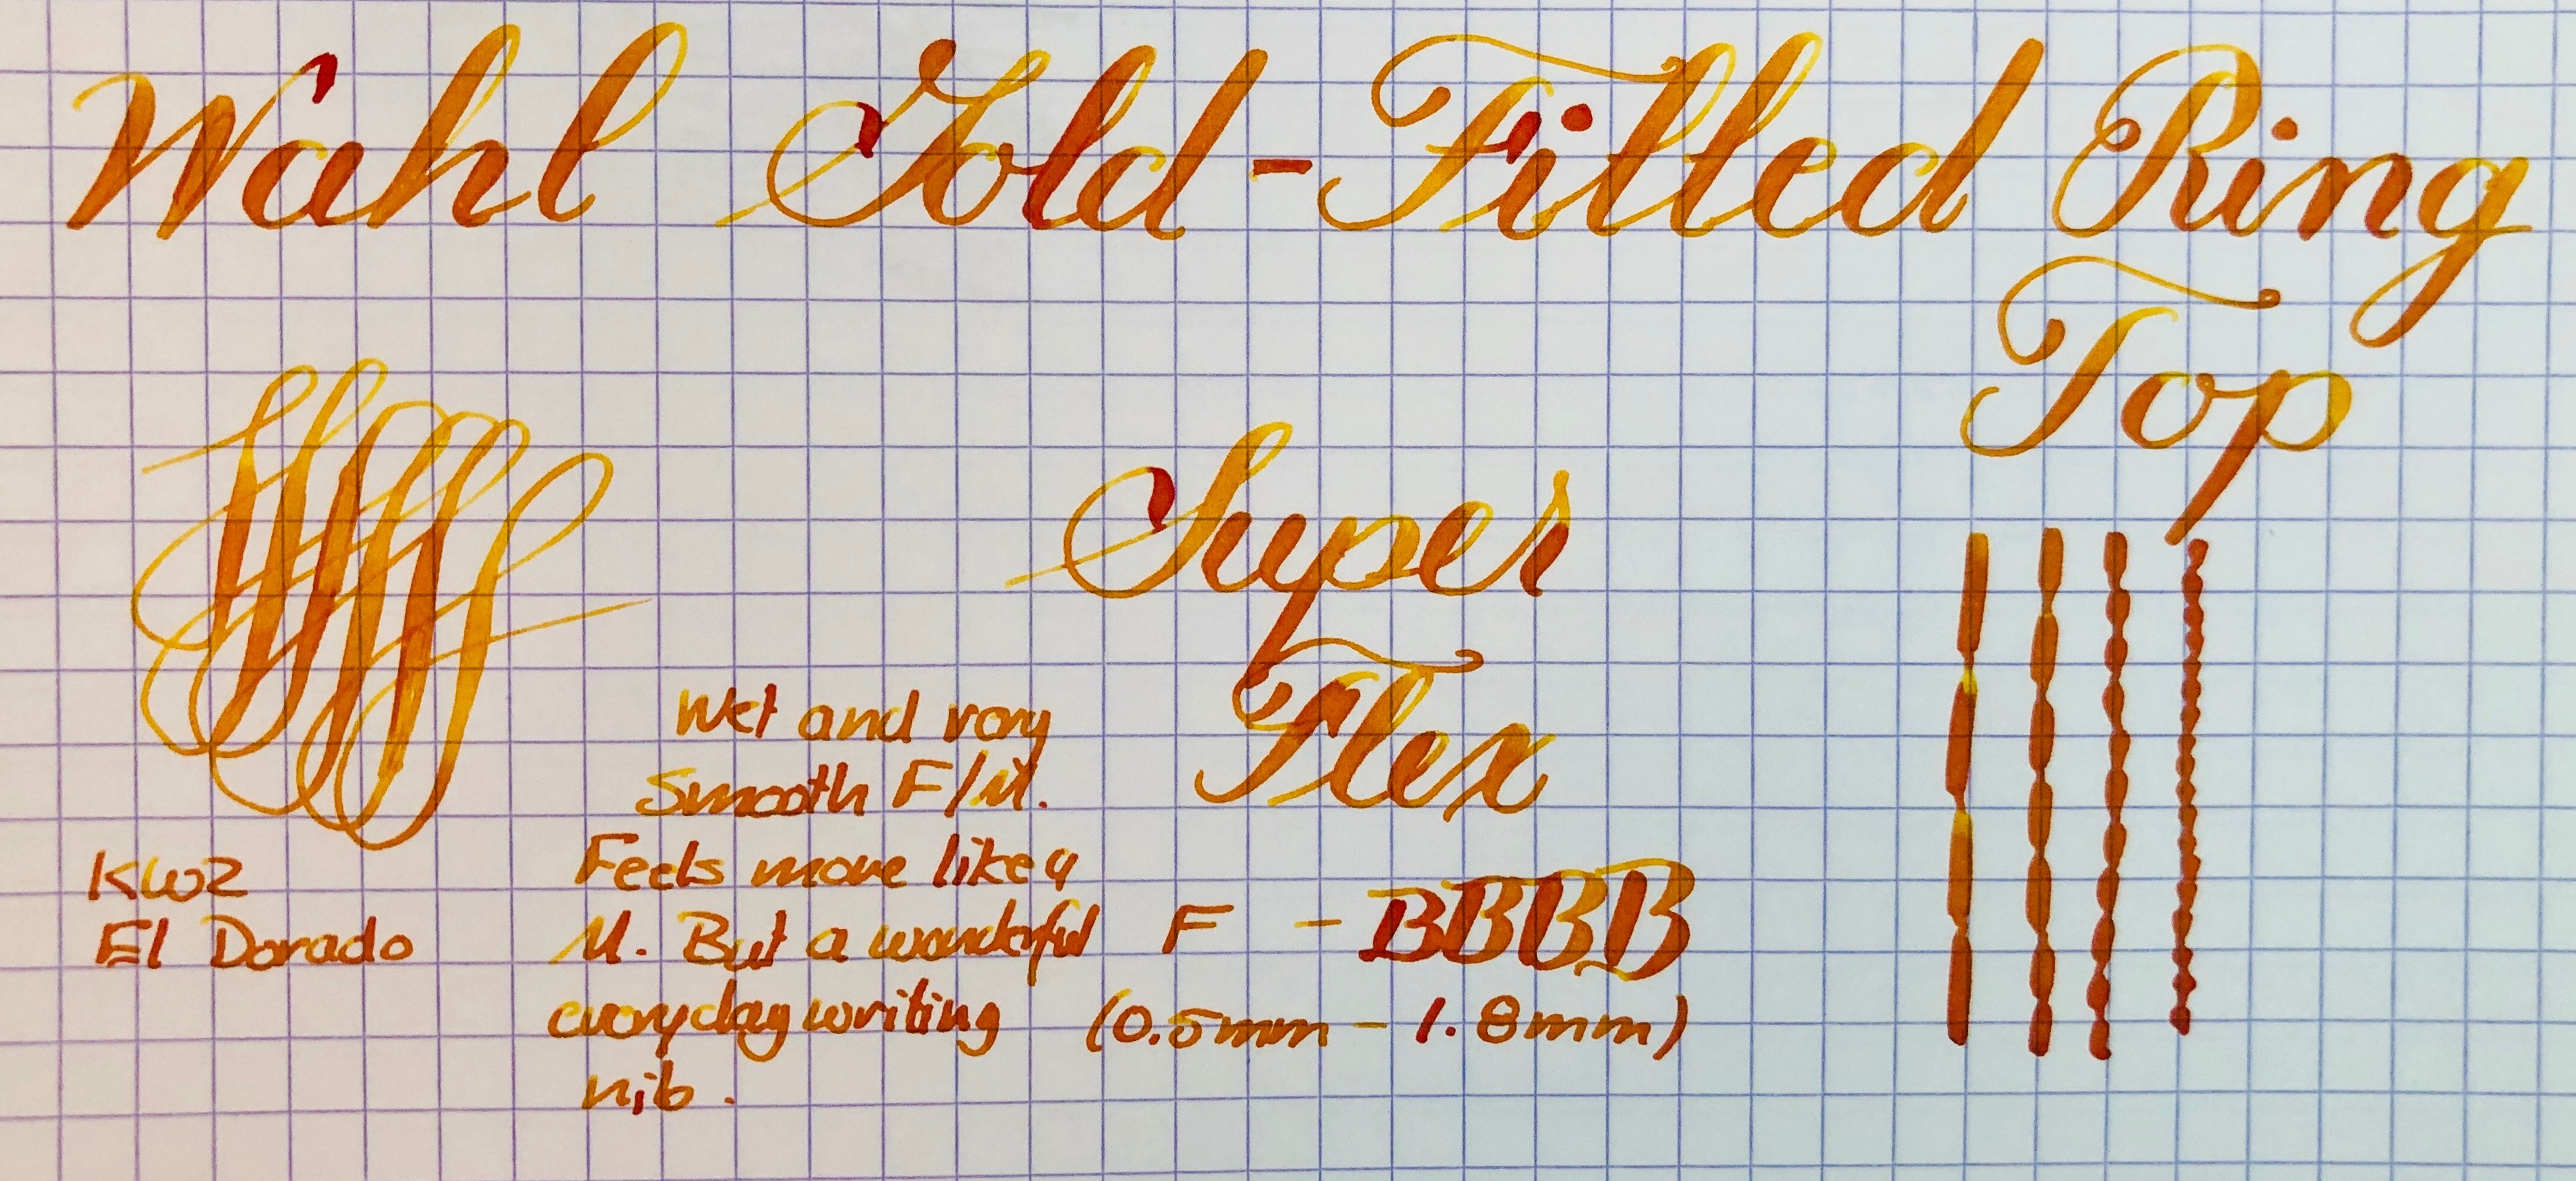 Wahl Gold-Filled Ring
Top
Super
Flex
Wet and very
Smooth F/M.
Feels more like a
M. But a wonderful
everyday writing
nib.
F - BBBB
(0.5mm - 1.8mm)
KWZ
El Dorado